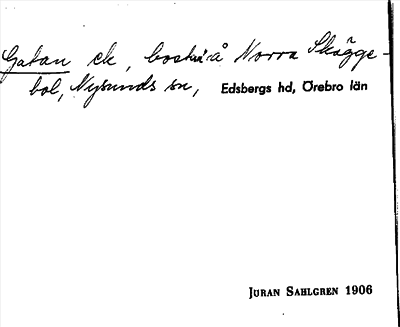 Gatan ek, bostn. å Norra Skägge-
bol, Nysunds sn, Edsbergs hd, Örebro län
JÖRAN SAHLGREN 1906